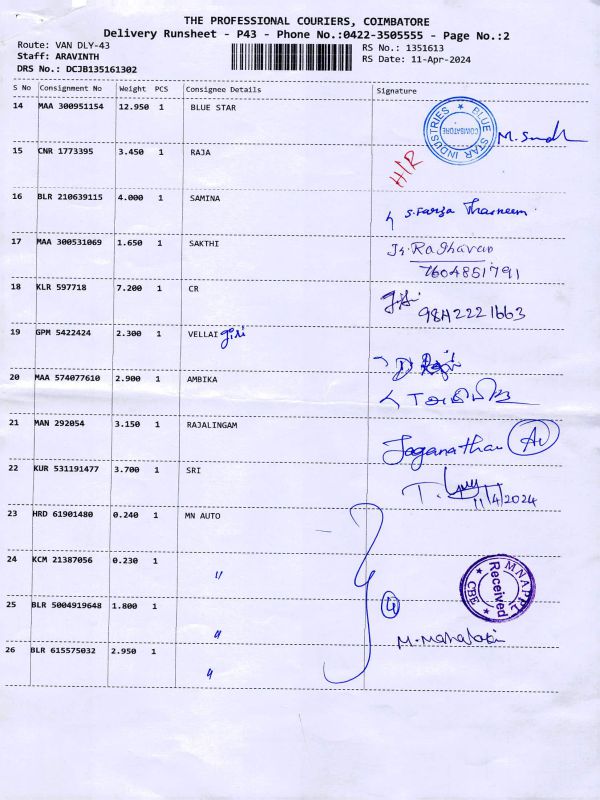 THE PROFESSIONAL COURIERS, COIMBATORE
Delivery Runsheet - P43 - Phone No.:0422-3505555 - Page No.:2
Route: VAN DLY-43 RS No.: 1351613
Staff: ARAVINTH RS Date: 11-Apr-2024
DRS No.: DCJB135161302
S No Consignment No Weight PCS Consignee Details Signature
14 MAA 300951154 12.950 1 BLUE STAR
BLUE STAR INDUSTRIES COIMBATORE
15 CNR 1773395 3.450 1 RAJA H/R
16 BLR 210639115 4.000 1 SAMINA S. Farza Thasneem
17 MAA 300531069 1.650 1 SAKTHI Raghavan
7604851791
18 KLR 597718 7.200 1 CR
19 GPM 5422424 2.300 1 VELLAI giri
20 MAA 574077610 2.900 1 AMBIKA
21 MAN 292054 3.150 1 RAJALINGAM Jaganathan
22 KUR 531191477 3.700 1 SRI T.
11/4/2024
23 HRD 61901480 0.240 1 MN AUTO
24 KCM 21387056 0.230 1 "
MNAPPL Received CBE
25 BLR 5004919648 1.800 1 " 4
26 BLR 615575032 2.950 1 "